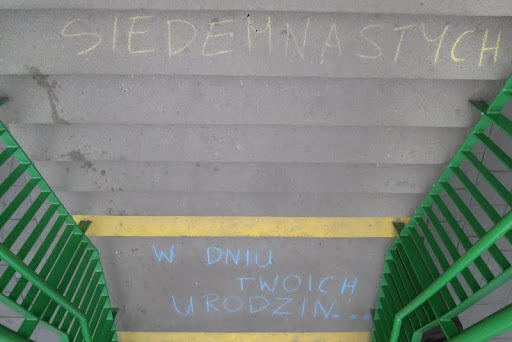 SIEDEMNASTYCH
W DNIU
TWOICH
URODZIN...